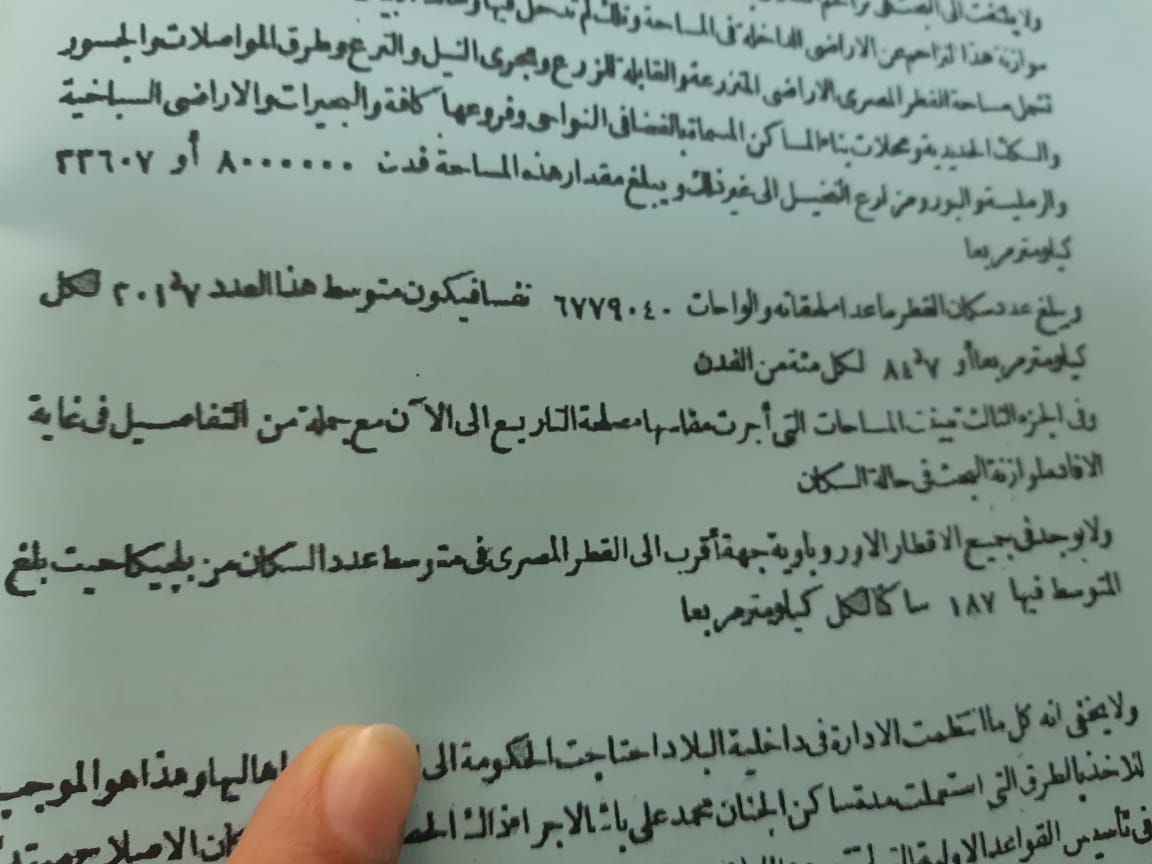 ولا يلتفت الى
موازنة هذا التزاحم عن الاراضى الداخلة فى المساحة وذلك لم تدخل فيها
تشمل مساحة القطر المصرى الاراضى المنزرعة والقابلة للزرع ومجرى النيل والترع وطرق المواصلات والجسور
والسكك الحديدية ومحلات بناء المساكن المسماة بالفضا فى النواحى وفروعها كافة والبحيرات والاراضى السباخية
والرمليــة والبور ومزارع النخيــل الى غير ذلك ويبلغ مقدار هذه المساحة فدن ٨٠٠٠٠٠٠ أو ٣٣٦٠٧
كيلومتر مربعا
ويبلغ عدد سكان القطر ماعدا ملحقاته والواحات ٦٧٧٩٠٤٠ نفسا فيكون متوسط هذا العدد ٢٠١٫٧ لكل
كيلومتر مربعا أو ٨٤٫٧ لكل مئة من الفدن
وفى الجزء الثالث تبينت المساحات التى أجرت مقاسها مصلحة التاريـع الى الآن مع جملة من التفاصيــل فى غاية
الافادة لموازنة البحث فى حالة السكان
ولا يوجد فى جميع الاقطار الاوروباوية جهة أقرب الى القطر المصرى فى متوسط عدد السكان من بلجيكا حيث بلغ
المتوسط فيها ١٨٧ ساكنا لكل كيلومتر مربعا
ولا يخفى انه كل ما انتظمت الادارة فى داخلية البلاد احتاجت الحكومة الى اهاليها وهذا هو الموجب
للاخذ بالطرق التى استعملت مدة ساكن الجنان محمد على باشا لاجراء ذلك
فى تأسيس القواعد الاولية